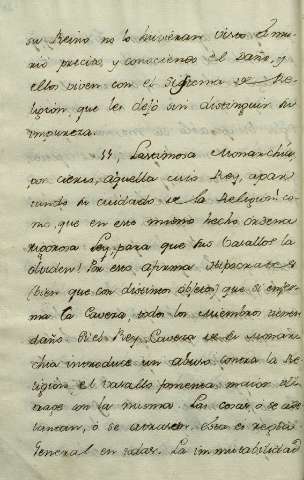 su Reino no lo huvieran visto
preciso, y conociendo el daño, y
ellos viven con el Sistema de Re
ligion que les dejó sin distinguir su
impureza.
Lastimosa Monarchia
por cierto, aquella cuio Rey, apar
tando su cuidado de la Religion! co
mo, que en este mismo hecho ordena
rigorosa Ley, para que sus Vasallos la
olviden! Por esto, afirma Hipocrates
(bien que con distintos objetos) que si enfer
ma la Cavera, todos los Miembros sienten
daño. Si el Rey, Cavera de su Monar
chia introduce un abuso contra la Re
ligion el Vasallo fomenta maior ul
trage con la misma. Las cosas, ó se ade
lantan, ó se atrasan. Esta es regla
General en todas. La immutabilidad